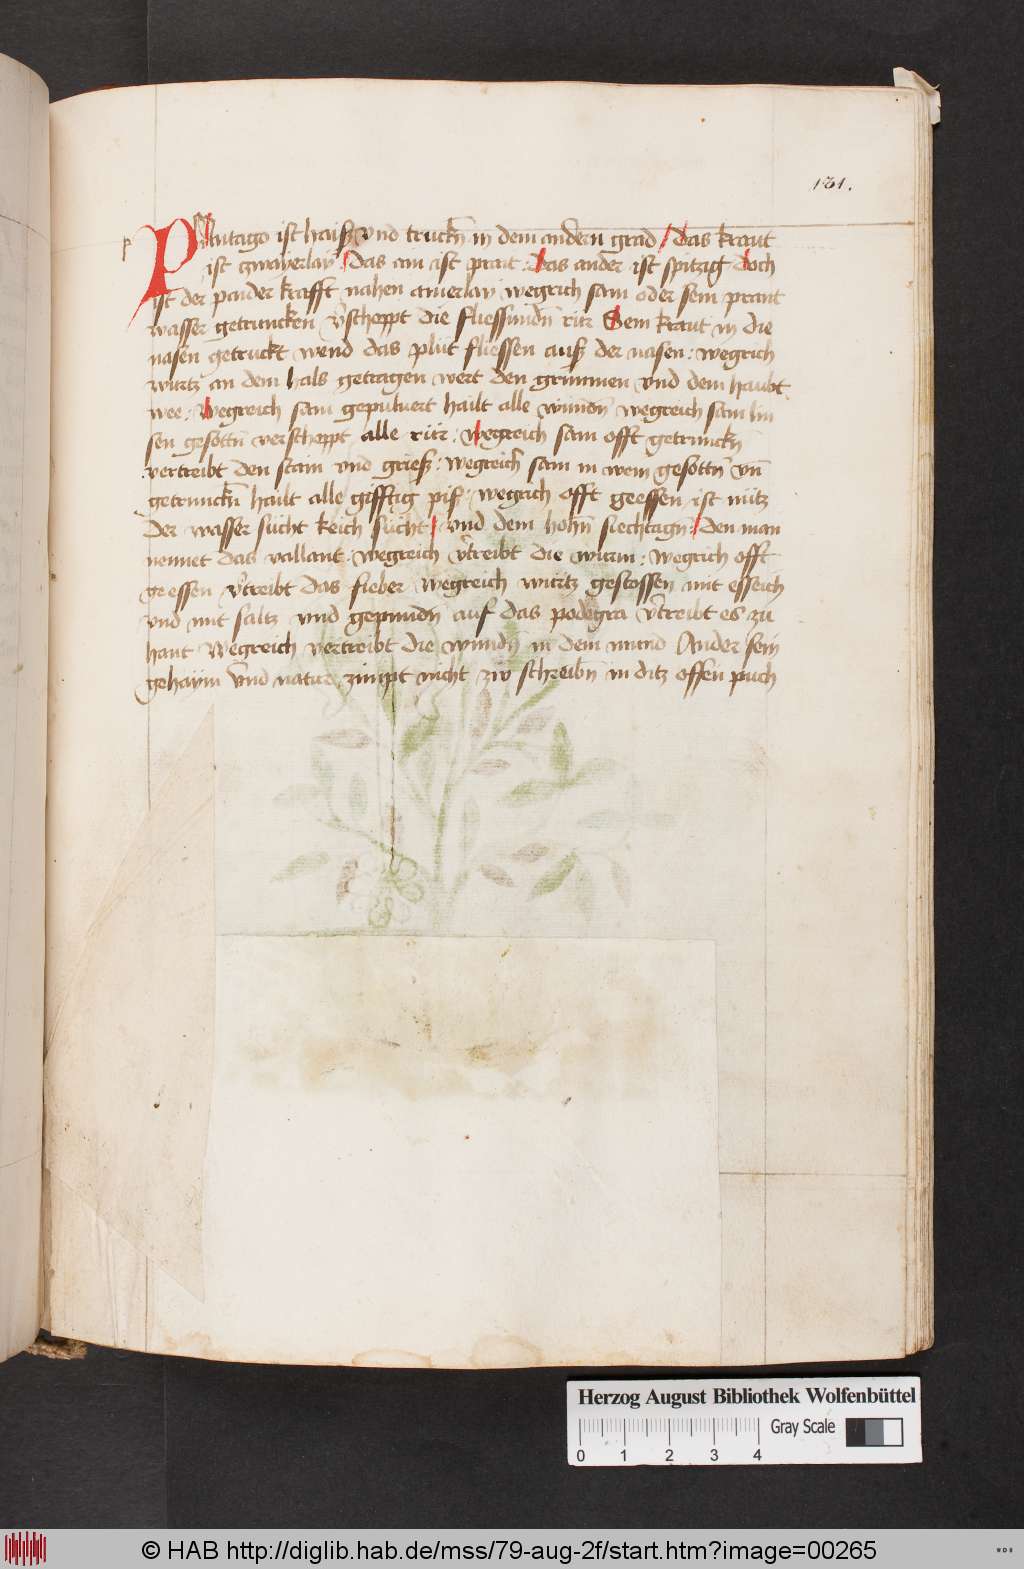 131.
p
Plantago ist haiß vnd truckn̄ in dem andern grad / das kraut
ist zwayerlay / das ain ist prait : das ander ist spitzig doch
ist der paider krafft nahen ainerlay wegrich sam oder sein prant
wasser getruncken v̄scheppt die fliessundn̄ rür Sein kraut in die
nasen getruckt wend das plüt fliessen auß der nasen : wegrich
würtz an dem hals getragen wert den grimmen vnd dem haubt
wee : wegreich sam gepuluert hailt alle wundn̄ wegreich sam lin
sen gesottn̄ verscheppt alle rür : wegreich sam offt getrunckn̄
vertreibt den stain vnd grieß : wegreich sam in wein gesottn̄ vn̄
getrunckn̄ hailt alle gifftig piß : wegrich offt geessen ist nütz
der wasser sücht keich sücht / vnd dem hohn̄ siechtagn̄ / den man
nennet das vallant : wegreich v̄treibt die würm : wegrich offt
geessen v̄treibt das fieber wegreich würtz gestossen mit esseich
vnd mit saltz vnd gepundn̄ auf das podegra v̄treibt es zu
hant wegreich vertreibt die wundn̄ in dem mund Ander sein
gehaym vnd natur zimpt nicht zw schreibn̄ in ditz offen puch
Herzog August Bibliothek Wolfenbüttel
Gray Scale
0 1 2 3 4
© HAB http://diglib.hab.de/mss/79-aug-2f/start.htm?image=00265